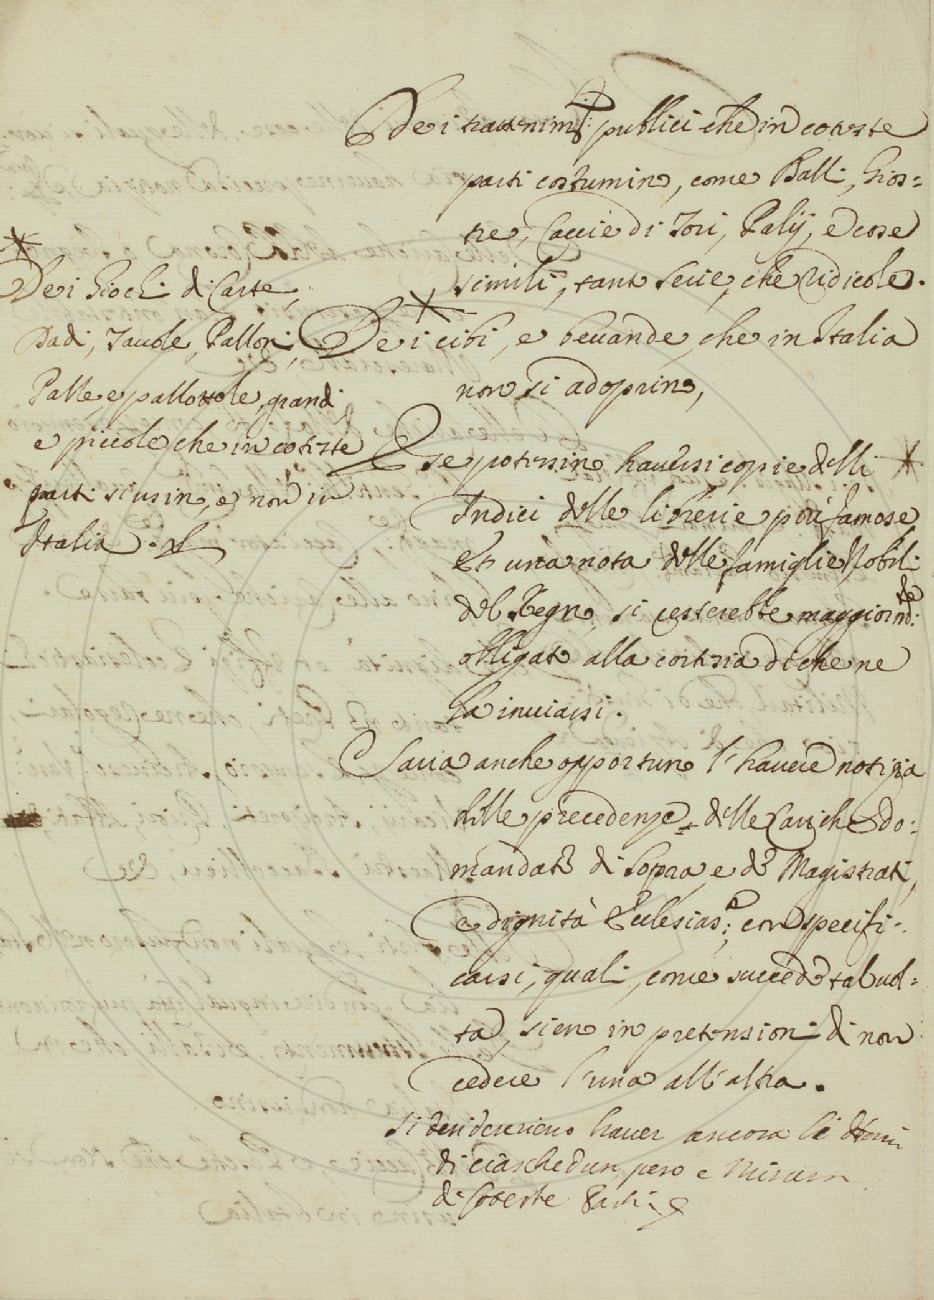 Dei trattenim.ti publici che in coteste
parti costumino, come Balli, Gios=
tre, Caccie di Tori, Palij, e cose
simili, tanto serie, che ridicole.
Dei Giochi di Carte,
Dadi, Tavole, Palloni,
Palle, e pallottole, grandi
e piccole che in coteste
parti si usino, e non in
Italia.
Dei cibi, e bevande, che in Italia
non si adoprino,
E se potessino haversi copie delli
Indici delle librerie più famose
et una nota delle famiglie Nobili
del Regno, si resterebbe maggiorm.te
obligato alla cortesia di che ne
fa inviarsi.
Saria anche opportuno l'havere notizia
delle precedenze delle Cariche do:
mandate di sopra, e de Magistrati,
e dignità Ecclesias.e; con specifi-
carsi, quali, come succede tal vol-
ta, sieno in pretensione di non
cedere l'una all'altra.
Si desiderieno haver ancora li Nomi
di ciaschedun peso e Misura
di Coteste Parti